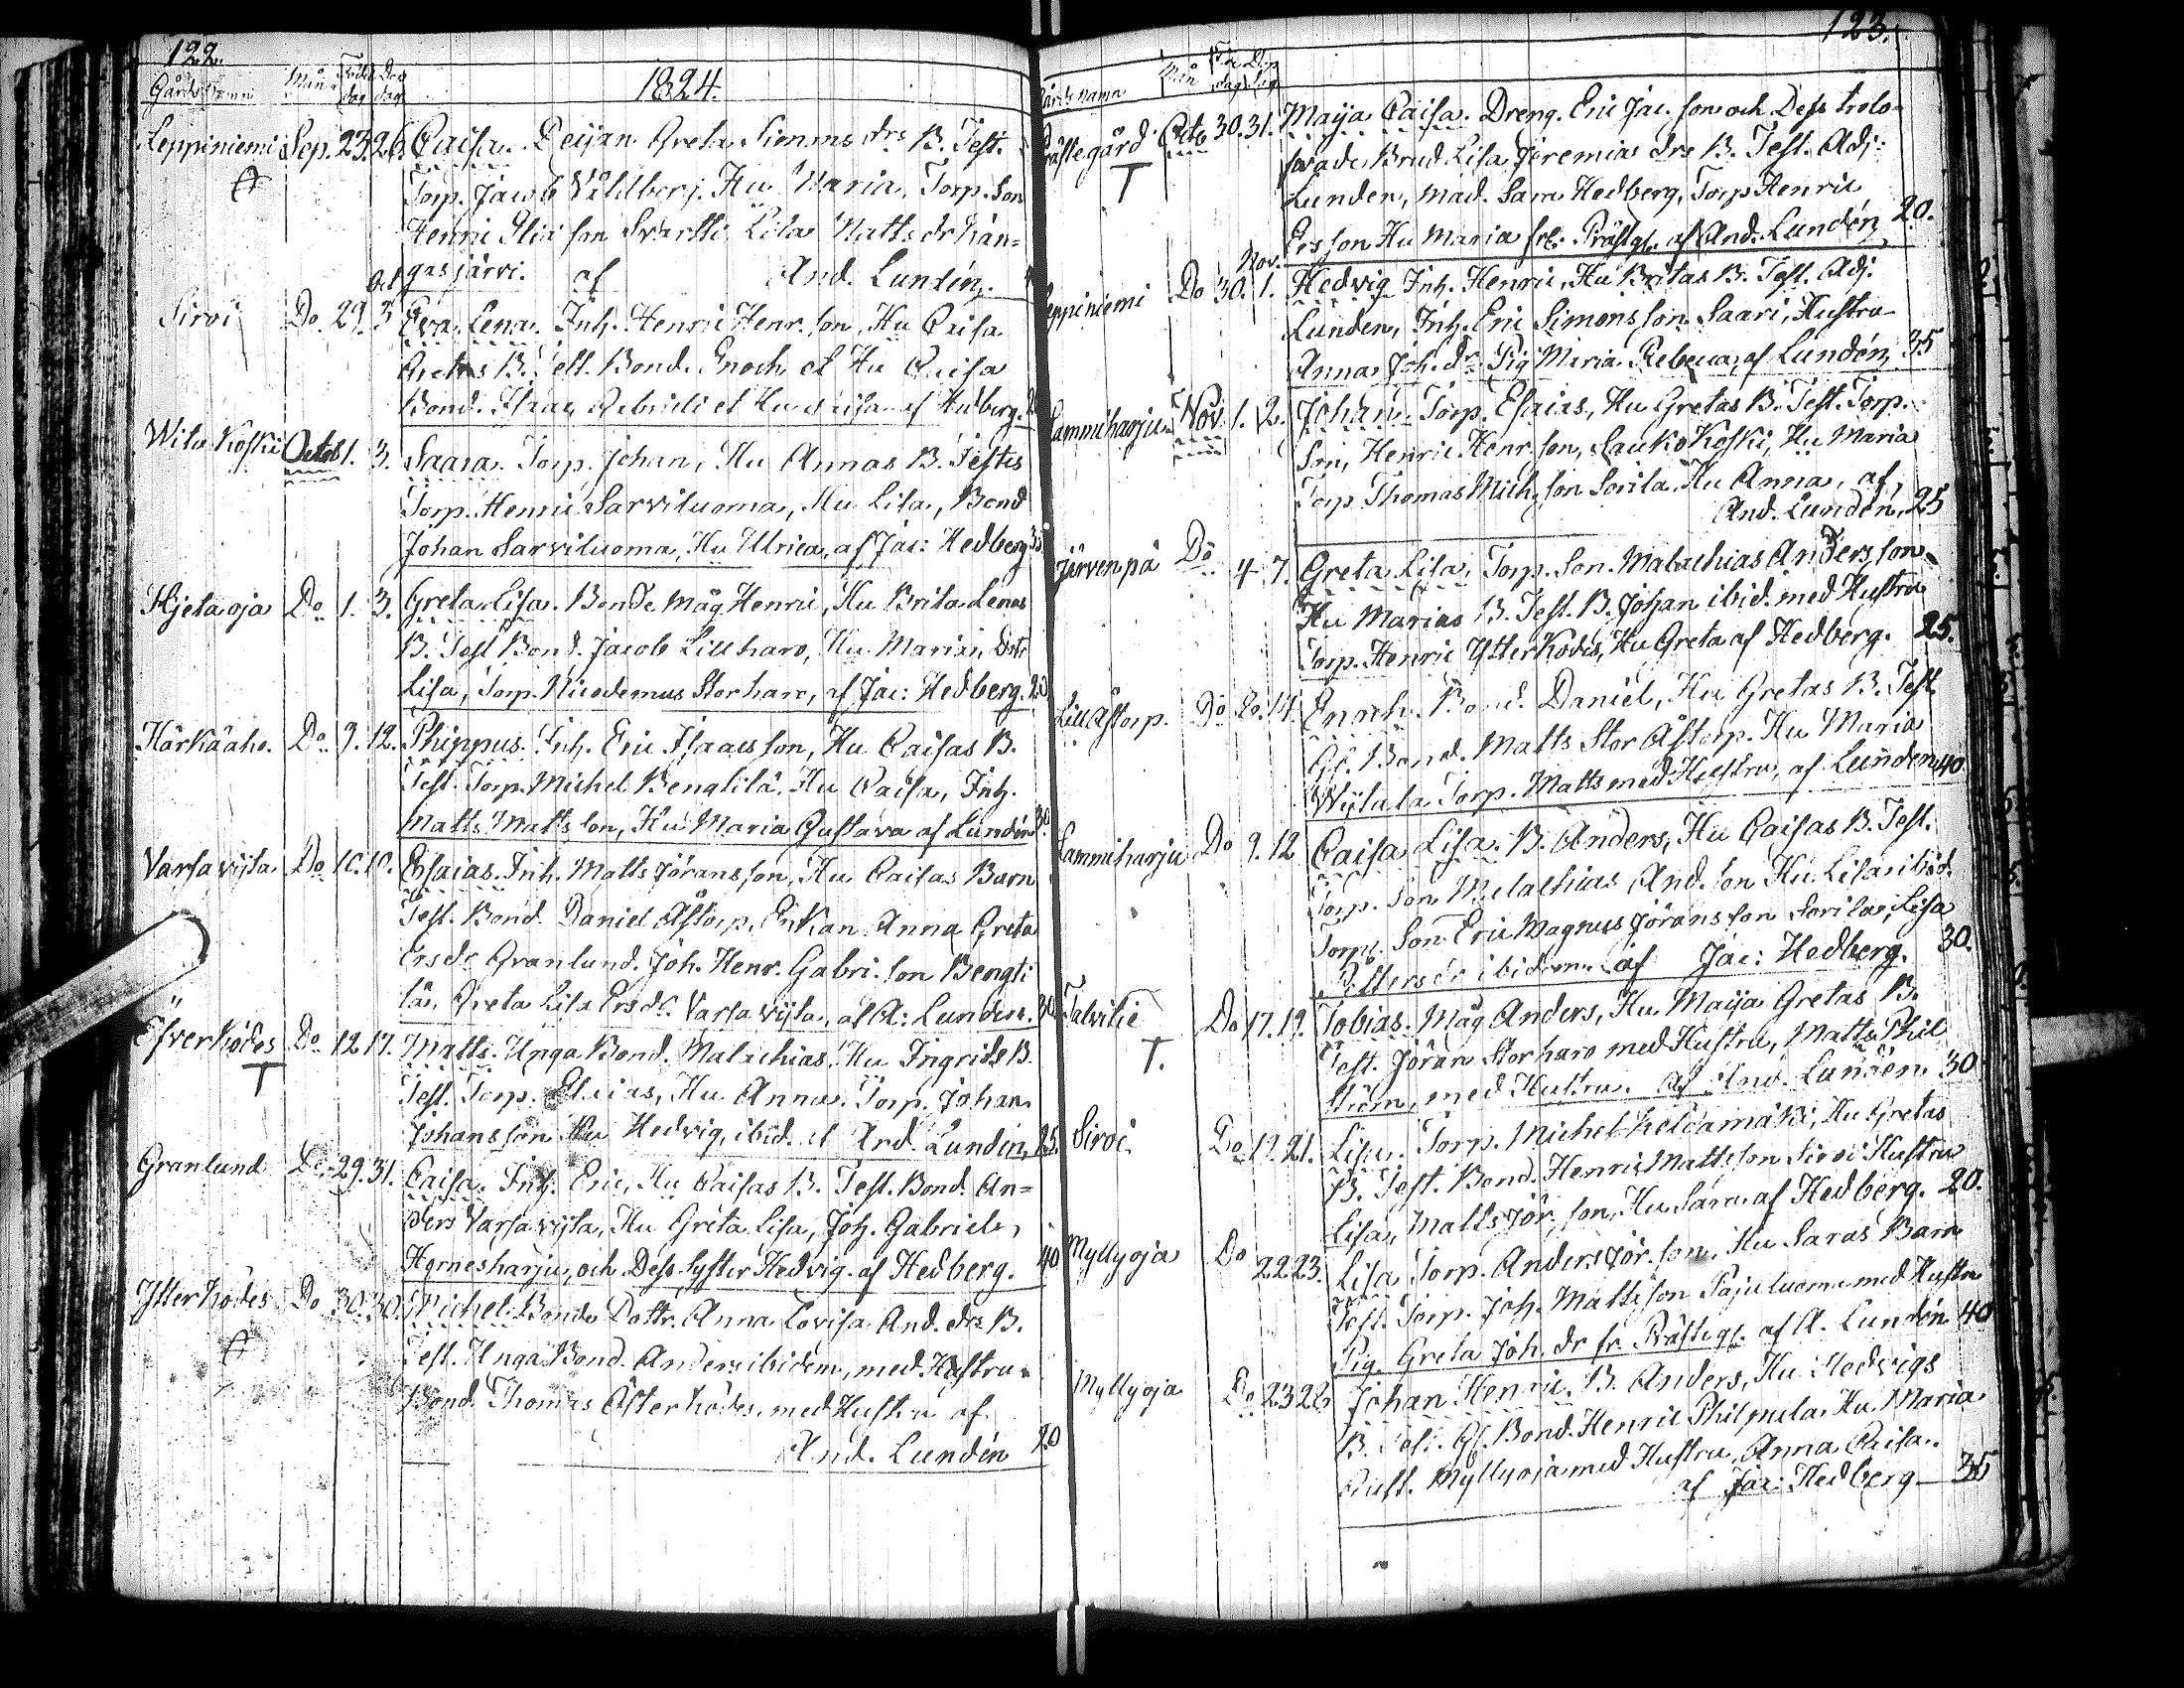 122.
Gårds Namn Mån Född dag Döp dag 1824.
Leppiniemi Sep. 23. 26. Caisa. Peijan Greta Simmsdrs B. Test.
Torp. Jacob Vildberg. Hu Maria, Torp. Son
Henric Elia son Svartti Lisa Matts dr Kån=
gasjärvi. af And. Lundén.
Oct
Sirvi Do 29. 3 Eva Lena. Inh. Henric Henr. son, Hu Caisa
Gretas B. Test. Bond. Enoch et Hu Caisa
Bond. Isaac et Hu Caisa af Hedberg.
Witu Koski Octob 1. 3. Saara. Torp. Johan, Hu Annas B. Testes
Torp. Henric Sarviluoma, Hu Lisa, Bond
Johan Sarviluoma, Hu Ulrica, af Jac: Hedberg 35
Hjetaoja Do 1. 3. Greta Lisa. Bonde Måg Henric, Hu Brita Lenas
B. Test Bond. Jacob Lillharo, Hu Maria, Dotr
Lisa, Torp. Nicodemus Storharo, af Jac: Hedberg. 20
Härkäaho. Do 9. 12. Phippus. Inh. Eric Isaacsson, Hu Caisas B.
Test. Torp. Michel Bengtilä. Hu Caisa, Inh.
Matts Mattsson, Hu Maria Gustava af Lundén 30.
Varsavijta Do 10. 10. Esaias. Inh. Matts Jöransson, Hu Caisas Barn
Test. Bond. Daniel Åstorp, Enkan Anna Greta
Ersdr Granlund. Joh. Henr. Gabri. son Bengti
lä. Greta Lisa Ersdr. Varsavijta, af A: Lundén. 30
Öfverködes Do 12. 17. Matts. Unga Bond. Malachias Hu Ingrids B.
T
Test. Torp. Elias, Hu Anna. Torp. Johan
Johansson Hu Hedvig, ibid. af And. Lundén, 25.
Granlund Do 29. 31. Caisa. Inh. Eric, Hu Caisas B. Test. Bond. An=
ders Varsavijta, Hu Greta Lisa, Joh. Gabriels,
Hernesharju, och Dess Syster Hedvig. af Hedberg. 40
Ytterködes Do 30. 30. Michel. Bonde Dottr. Anna Lovisa And. drs B.
Test. Unga Bond. Anders ibidem, med Hustru
Bond. Thomas Österködes med Hustru af
And. Lundén 20
123.
Gårds namn Mån Fö dag Döp dag
Prästegård Octo 30. 31. Maija Caisa. Dreng. Eric Jac. son och Dess trolo-
T
fvade Brud Lisa Jeremias drs B. Test. Adj:
Lunden, Mad. Sara Hedberg, Torp Henric
Ersson Hu Maria fr: Prästg. af And. Lundén 20.
Nov.
Leppiniemi Do 30. 1. Hedvig Inh. Henric, Hu Britas B. Test. Adj.
Lunden, Inh. Eric Simonsson Saari, Hustru
Anna Joh. dr Pig Maria Rebecca, af Lundén 35
Lammiharju Nov 1. 2. Johan. Torp. Esaias, Hu Gretas B. Test. Torp.
Son, Henric Henr. son, Saukokoski, Hu Maria
Torp Thomas Mich. son Sorila Hu Anna, af,
And. Lundén, 25
Järvenpä Do 4 7. Greta Lisa, Torp. Son. Malachias Andersson
Hu Marias B. Test. B. Johan ibid. med Hustru
Torp. Henric Ytterködes, Hu Greta af Hedberg. 25.
Lillåstorp. Do 14. Enoch. Bond. Daniel, Hu Gretas B. Test
Gf. Bond. Matts Stor Åstorp. Hu Maria
Wijtala Torp. Matts med Hustru, af Lunden 40.
Lammiharju Do 9. 12 Caisa Lisa. B. Anders, Hu Caisas B. Test.
Torp. Son Melachias And. son Hu Lisa ibid.
Torp. Son Eric Magnus Jöransson Sorila, Lisa
Pettersdr ibidem af Jac: Hedberg. 30.
Talvitie Do 17. 19. Tobias. Måg Anders, Hu Maija Gretas B.
T.
Test. Jöran Storharo med Hustru, Matts Phil
ström, med Hustru. af And. Lundén 30
Sirvi. Do 19. 21. Lisa. Torp. Michel Keldämäki, Hu Gretas
B. Test. Bond. Henric Mattsson Sirvi Hustru
Lisa, Matts Jör. son, Hu Sara af Hedberg. 20.
Myllyoja Do 22 23. Lisa Torp. Anders Jör. son. Hu Saras Barn
Test. Torp. Joh. Mattsson Pajuluoma med Hustru
Pig. Greta Joh. dr fr. Prästeg. af A. Lundén 40
Myllyoja Do 23 28 Johan Henric. B. Anders, Hu Hedvigs
B. Test. Gf. Bond. Henric Philpula Hu Maria
Gust. Myllyoja med Hustru, Anna Caisa.
af Jac: Hedberg 35